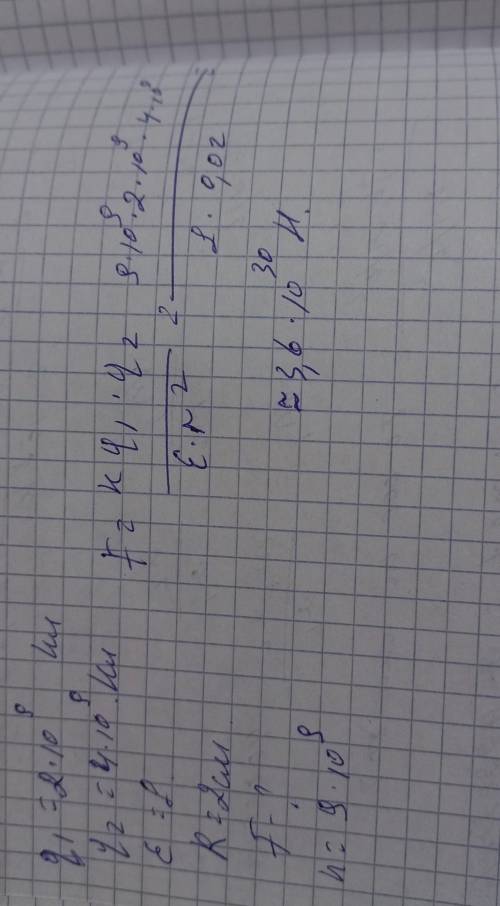 q₁ = 2·10⁹ Кл
q₂ = 4·10⁹ Кл
ε = 2
R = 2см
F - ?
к = 9·10⁹
F = к q₁·q₂ / ε·r² = 9·10⁹·2·10⁹·4·10⁹ / 2·0,02 =
≈ 3,6·10³⁰ Н.